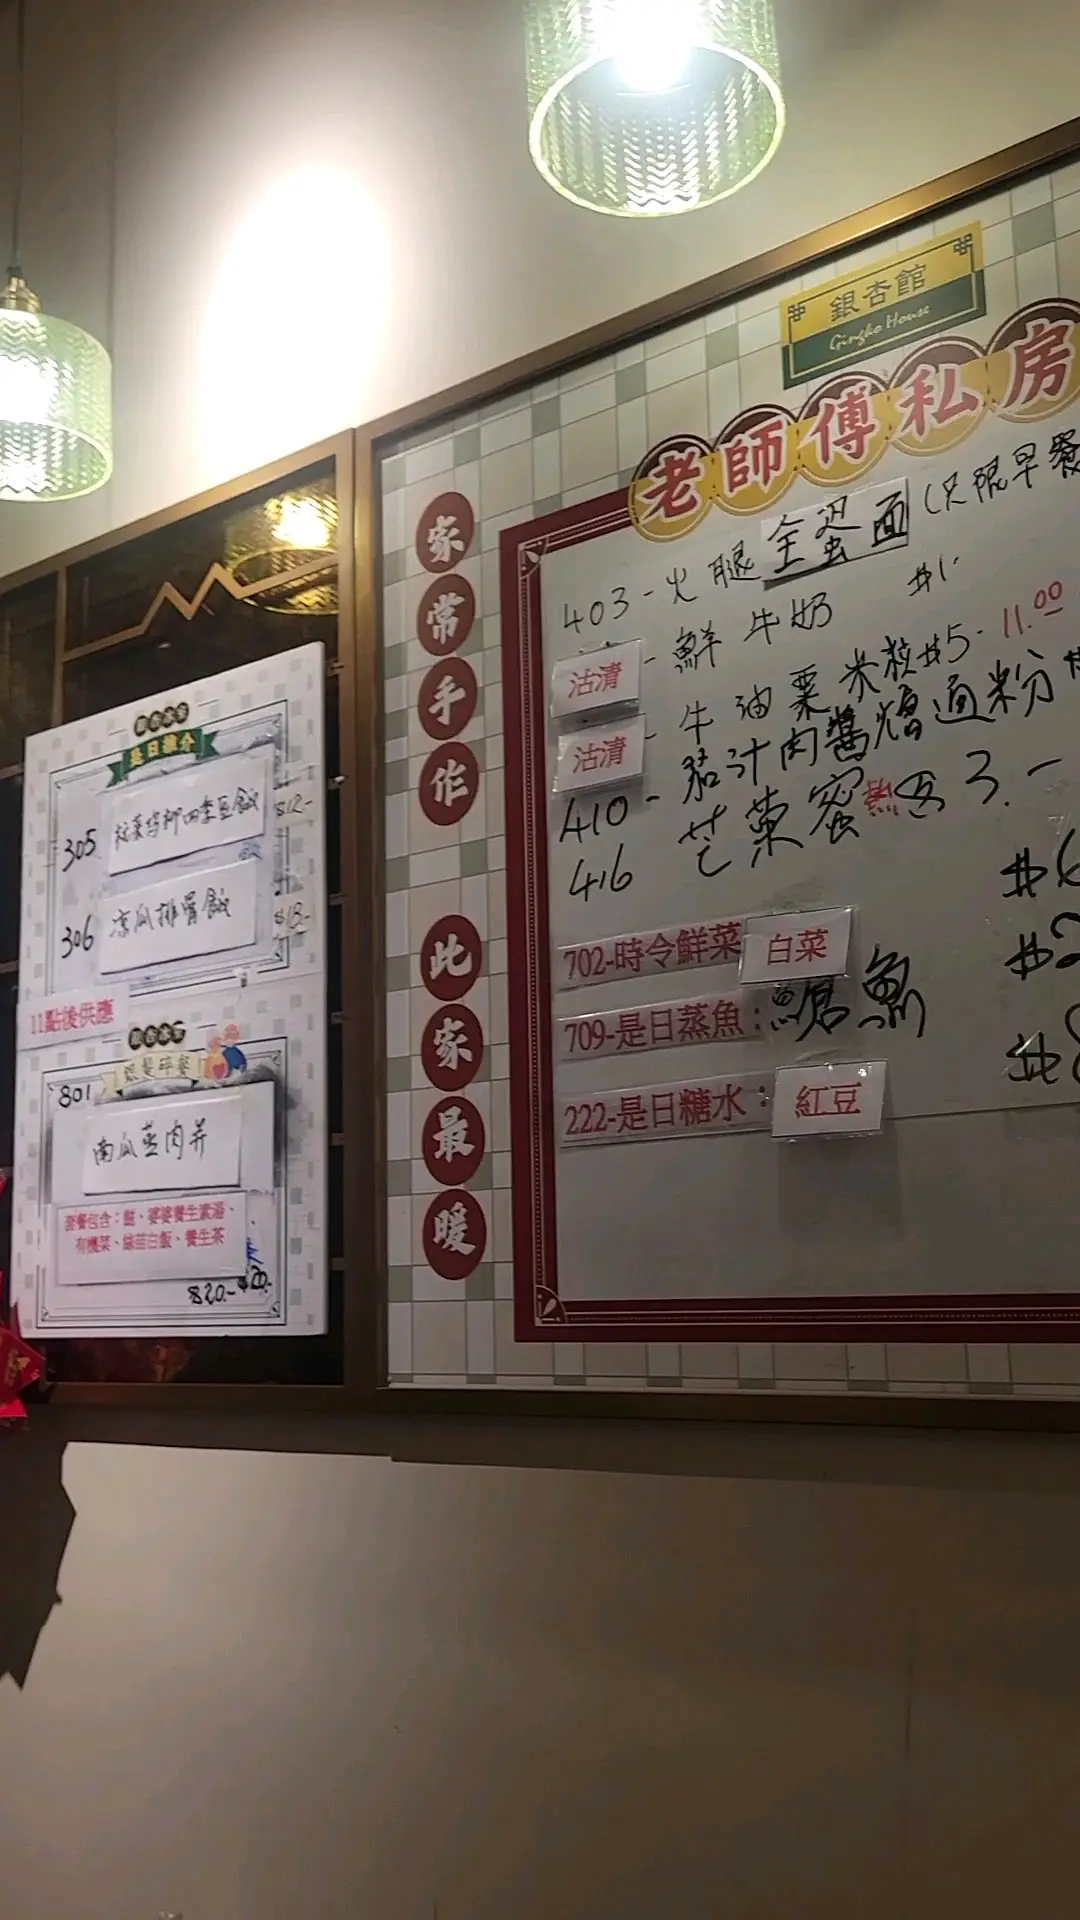 是日推介
305
306 涼瓜排骨飯
11點後供應
801
南瓜蒸肉弁
套餐包含：餸、婆婆養生素湯、
有機菜、絲苗白飯、養生茶
$20.-
家常手作
此家最暖
銀杏館
Gingko House
老師傅私房
403-火腿全蛋面(只限早餐
沽清-鮮牛奶 $1.
沽清-牛油粟米粒$5-
410-茄汁肉醬燴通粉 11.00
416 芒菓蜜 3.-
702-時令鮮菜 白菜
709-是日蒸魚：鯧魚
222-是日糖水：紅豆